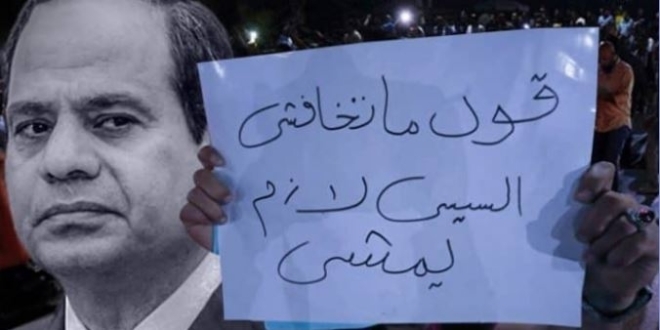 قول ماتخافشى
السيسى لازم
يمشى